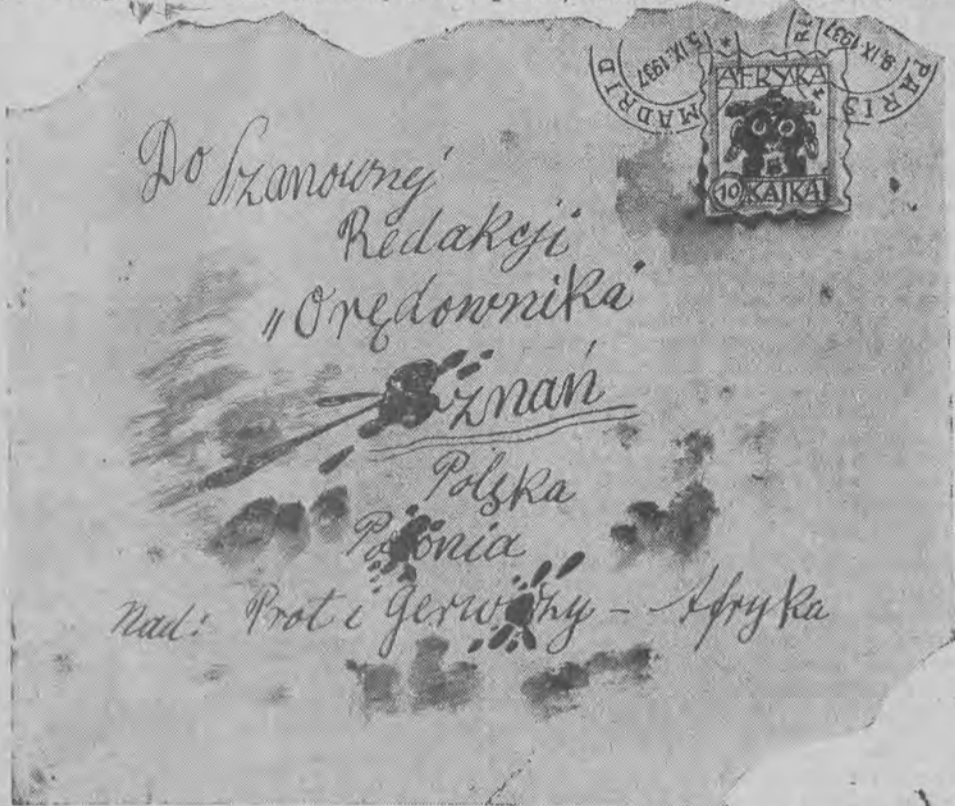 MADRID 5.IX.1937
PARIS 9.IX.1937
AFRYKA
10 KAJKA
Do Szanownej
Redakcji
„Orędownika"
znań
Polska
Polonia
Nad: Prot i Gerwazy - Afryka